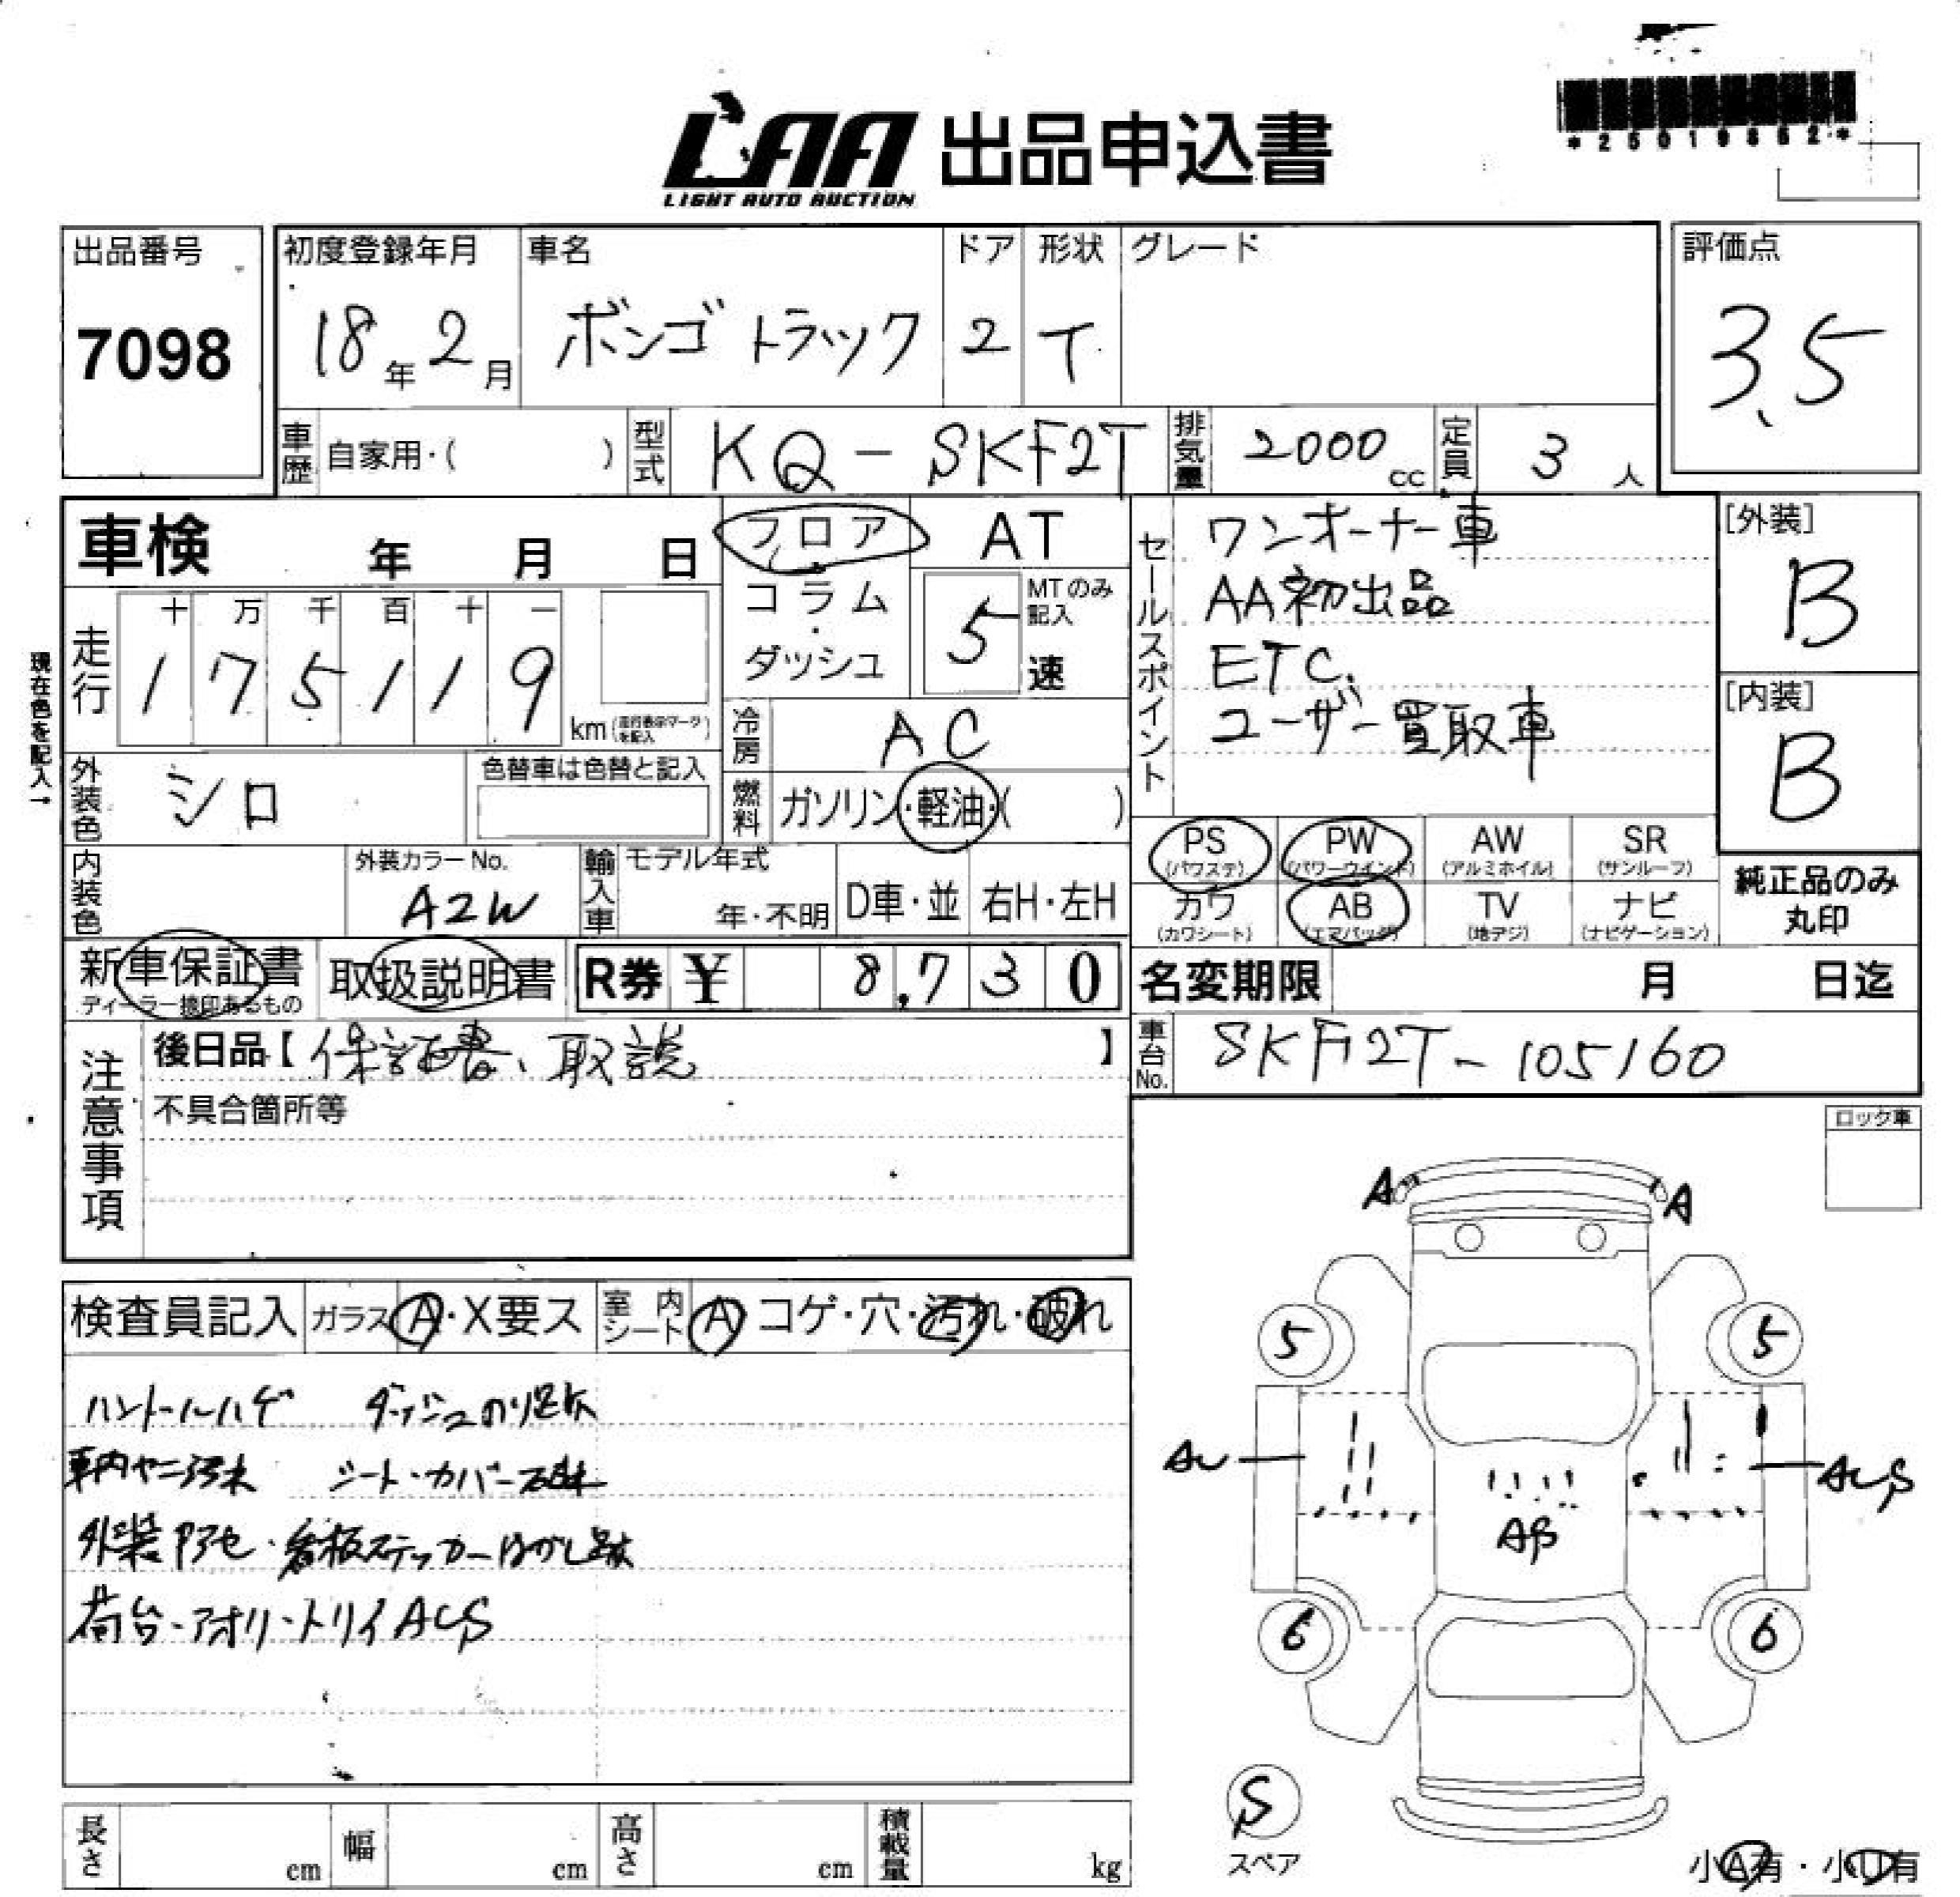 *25019862*
LAA 出品申込書
LIGHT AUTO AUCTION
出品番号
7098
初度登録年月
18年2月
車名
ボンゴトラック
ドア
2
形状
T
グレード
評価点
3.5
車歴 自家用・( )
型式 KQ-SKF2T
排気量 2000cc
定員 3人
車検 年 月 日
走行
十 万 千 百 十 一
1 7 5 1 1 9
km(走行表示マークを記入)
現在色を記入→
フロア・コラム・ダッシュ
AT
5速
MTのみ記入
冷房 AC
燃料 ガソリン・軽油・( )
セールスポイント
ワンオーナー車
AA初出品
ETC.
ユーザー買取車
[外装]
B
[内装]
B
外装色 シロ
色替車は色替と記入
内装色
外装カラーNo.
A2W
輸入車 モデル年式
年・不明 D車・並 右H・左H
PS (パワステ)
PW (パワーウインド)
AW (アルミホイル)
SR (サンルーフ)
カワ (カワシート)
AB (エアバッグ)
TV (地デジ)
ナビ (ナビゲーション)
純正品のみ
丸印
新車保証書
ディーラー捺印あるもの
取扱説明書
R券 ¥ 8,730
名変期限 月 日迄
車台No. SKF2T-105160
注意事項
後日品【保証書、取説】
不具合箇所等
ロック車
検査員記入 ガラス A・X要ス 室内シート A コゲ・穴・汚れ・破れ
ハンドルハゲ ダッシュのり跡
車内ヤニ汚れ シート・カバー破れ
外装アセ・看板ステッカーはがし跡
荷台・アオリ・トリイAUS
A A
5 5
AU AUS
AS
6 6
S
スペア
小A有・小U有
長さ cm 幅 cm 高さ cm 積載量 kg